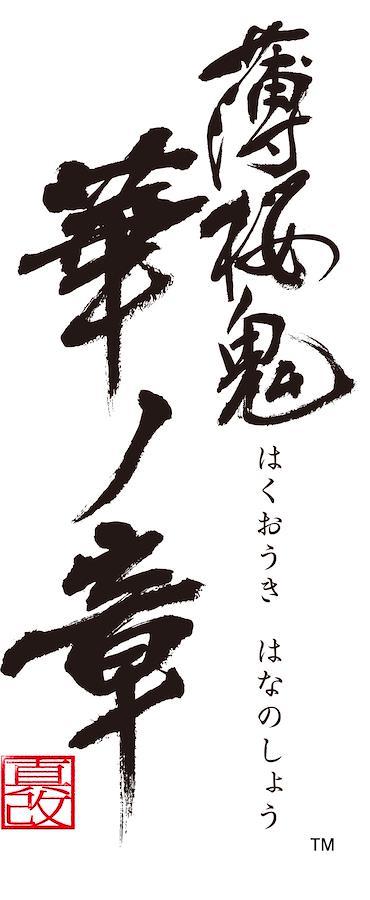 薄桜鬼
華ノ章
はくおうき　はなのしょう
真改
TM